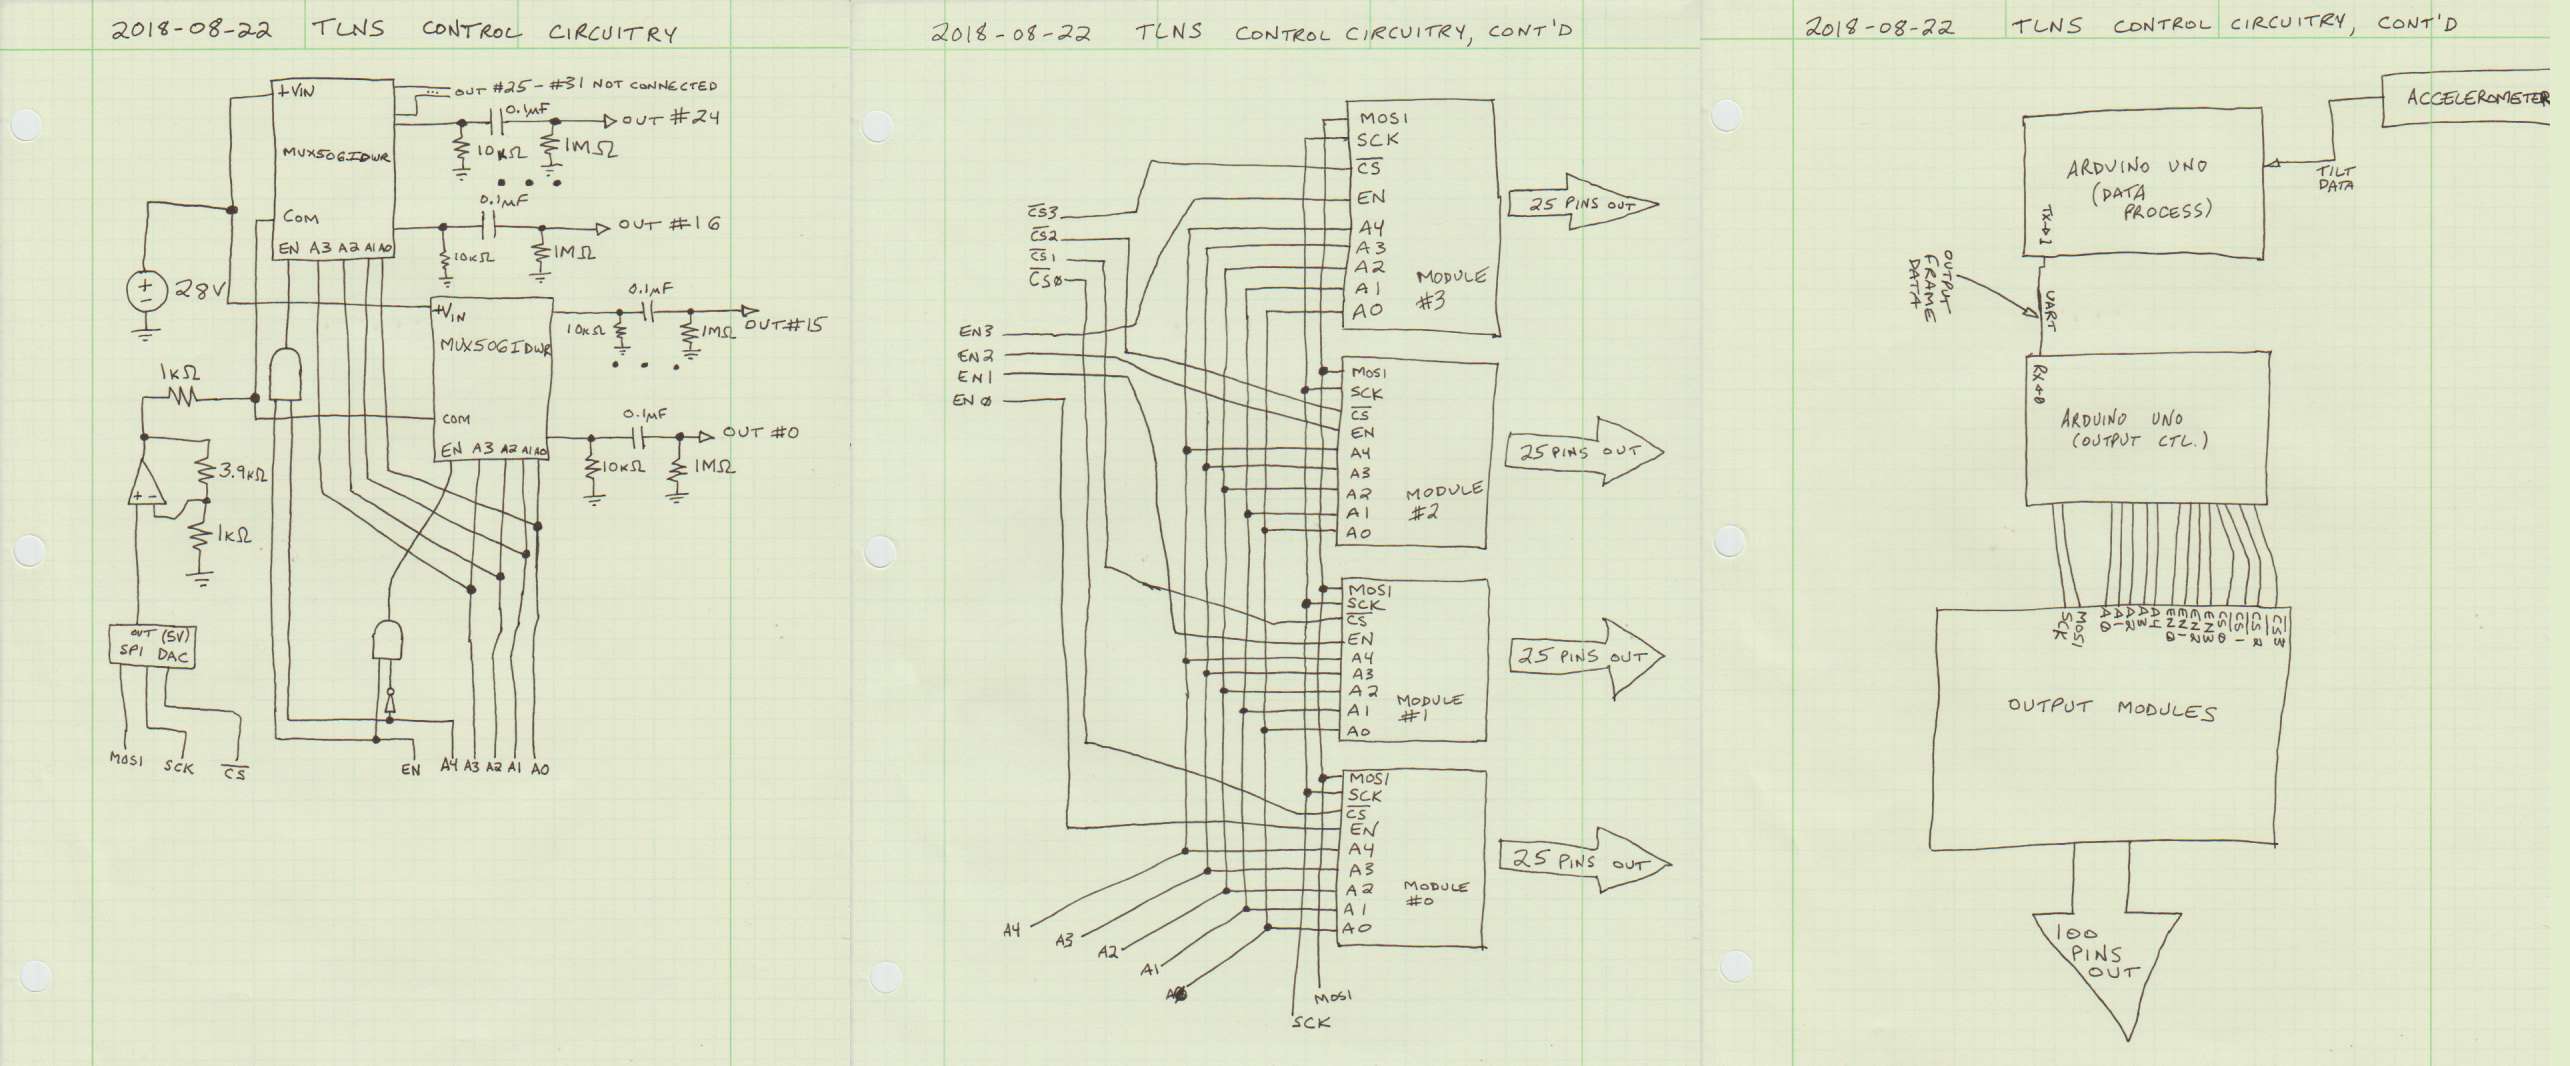 2018-08-22 TLNS CONTROL CIRCUITRY
+VIN
OUT #25 - #31 NOT CONNECTED
0.1µF
OUT #24
MUX506IDWR
10KΩ
1MΩ
0.1µF
COM
OUT #16
EN A3 A2 A1 A0
10KΩ
1MΩ
28V
0.1µF
+VIN
10KΩ
1MΩ
OUT #15
MUX506IDWR
1KΩ
0.1µF
COM
OUT #0
EN A3 A2 A1 A0
10KΩ
1MΩ
3.9KΩ
+ -
1KΩ
OUT (5V)
SPI DAC
MOSI SCK CS
EN A4 A3 A2 A1 A0
2018-08-22 TLNS CONTROL CIRCUITRY, CONT'D
CS3
CS2
CS1
CS0
EN3
EN2
EN1
EN0
MOSI
SCK
CS
EN
A4
A3
A2
A1
A0
MODULE
#3
25 PINS OUT
MOSI
SCK
CS
EN
A4
A3
A2
A1
A0
MODULE
#2
25 PINS OUT
MOSI
SCK
CS
EN
A4
A3
A2
A1
A0
MODULE
#1
25 PINS OUT
MOSI
SCK
CS
EN
A4
A3
A2
A1
A0
MODULE
#0
25 PINS OUT
A4
A3
A2
A1
A0
MOSI
SCK
2018-08-22 TLNS CONTROL CIRCUITRY, CONT'D
ACCELEROMETER
ARDUINO UNO
(DATA
PROCESS)
TILT
DATA
TX→1
OUTPUT
FRAME
DATA
UART
RX←0
ARDUINO UNO
(OUTPUT CTL.)
SCK
MOSI
A0
A1
A2
A3
A4
EN0
EN1
EN2
EN3
CS0
CS1
CS2
CS3
OUTPUT MODULES
100
PINS
OUT